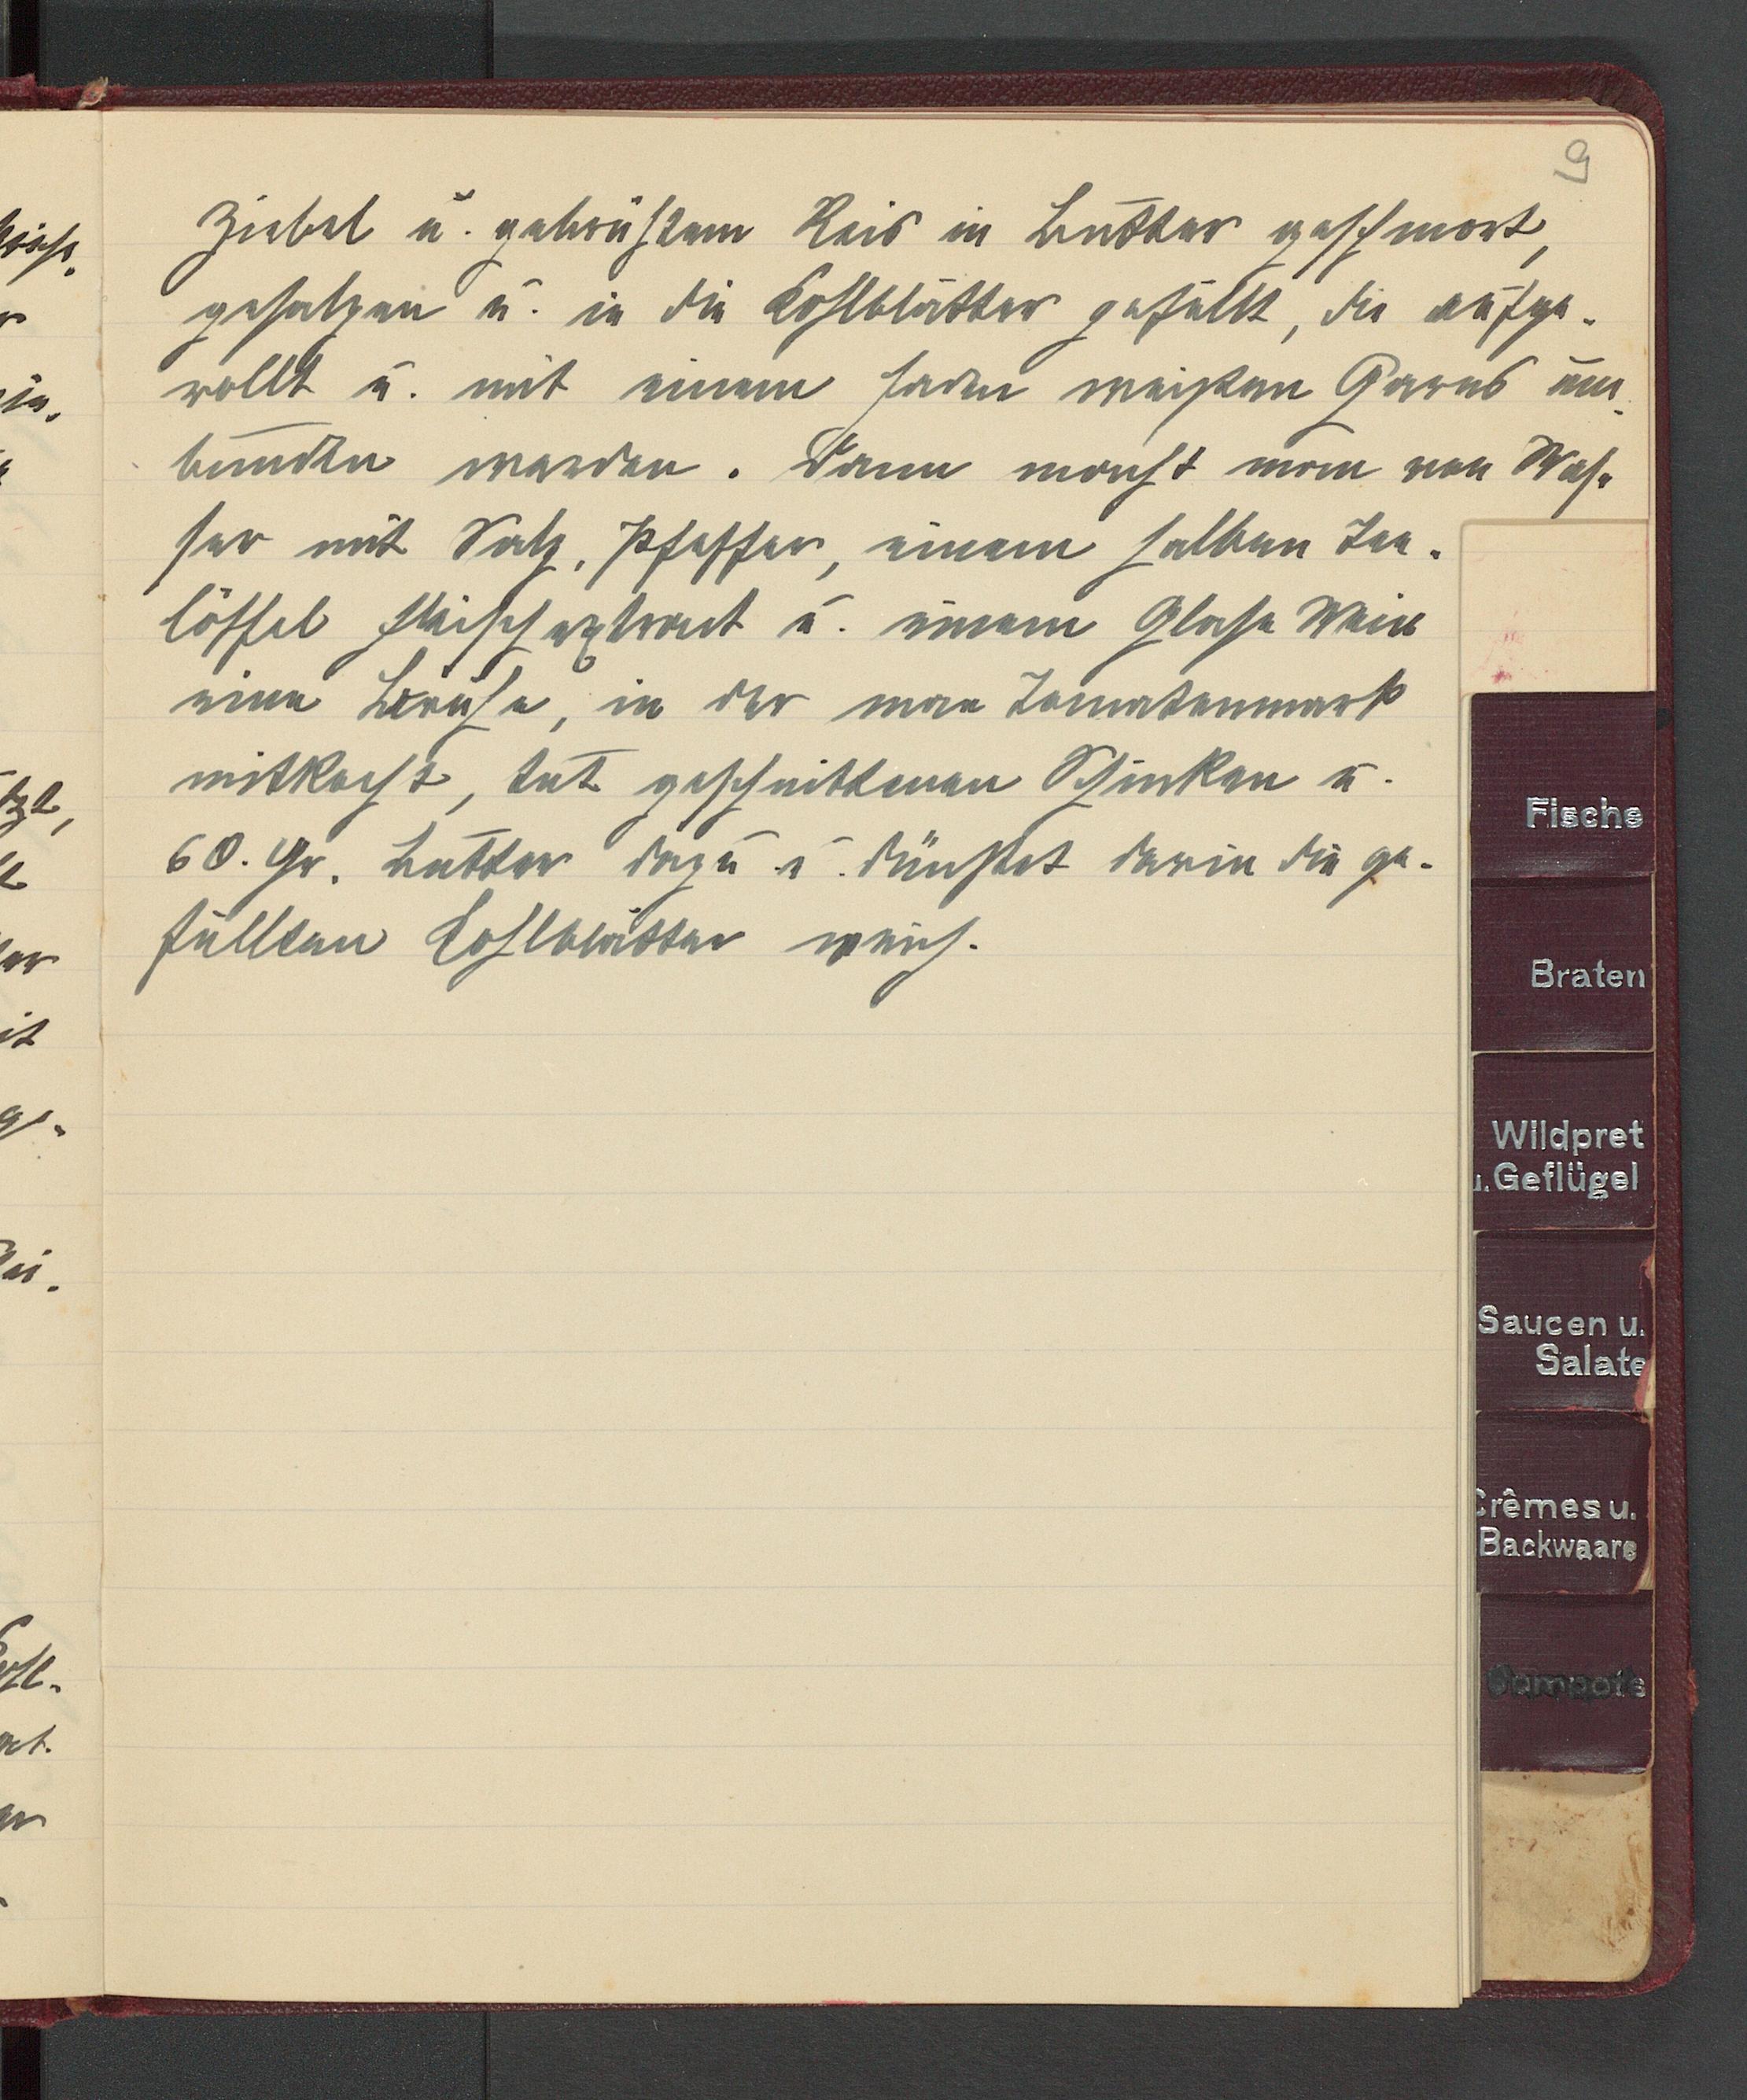 9
Ziebel u. gebrühtem Reis in Butter geschmort,
gesalzen u. in die Kohlblätter gefüllt, die aufge-
rollt u. mit einem Faden weißen Garns um-
bunden werden. Dann macht man von Was-
ser mit Salz, Pfeffer, einem halben Tee-
löffel Fleischextract u. einem Glase Wein
eine Brühe, in der man Tomatenmark
mitkocht, tut geschnittenen Schinken u.
60. Gr. Butter dazu u. dünstet darin die ge-
füllten Kohlblätter weich.
Fische
Braten
Wildpret
u. Geflügel
Saucen u.
Salate
Crêmes u.
Backwaare
Compots